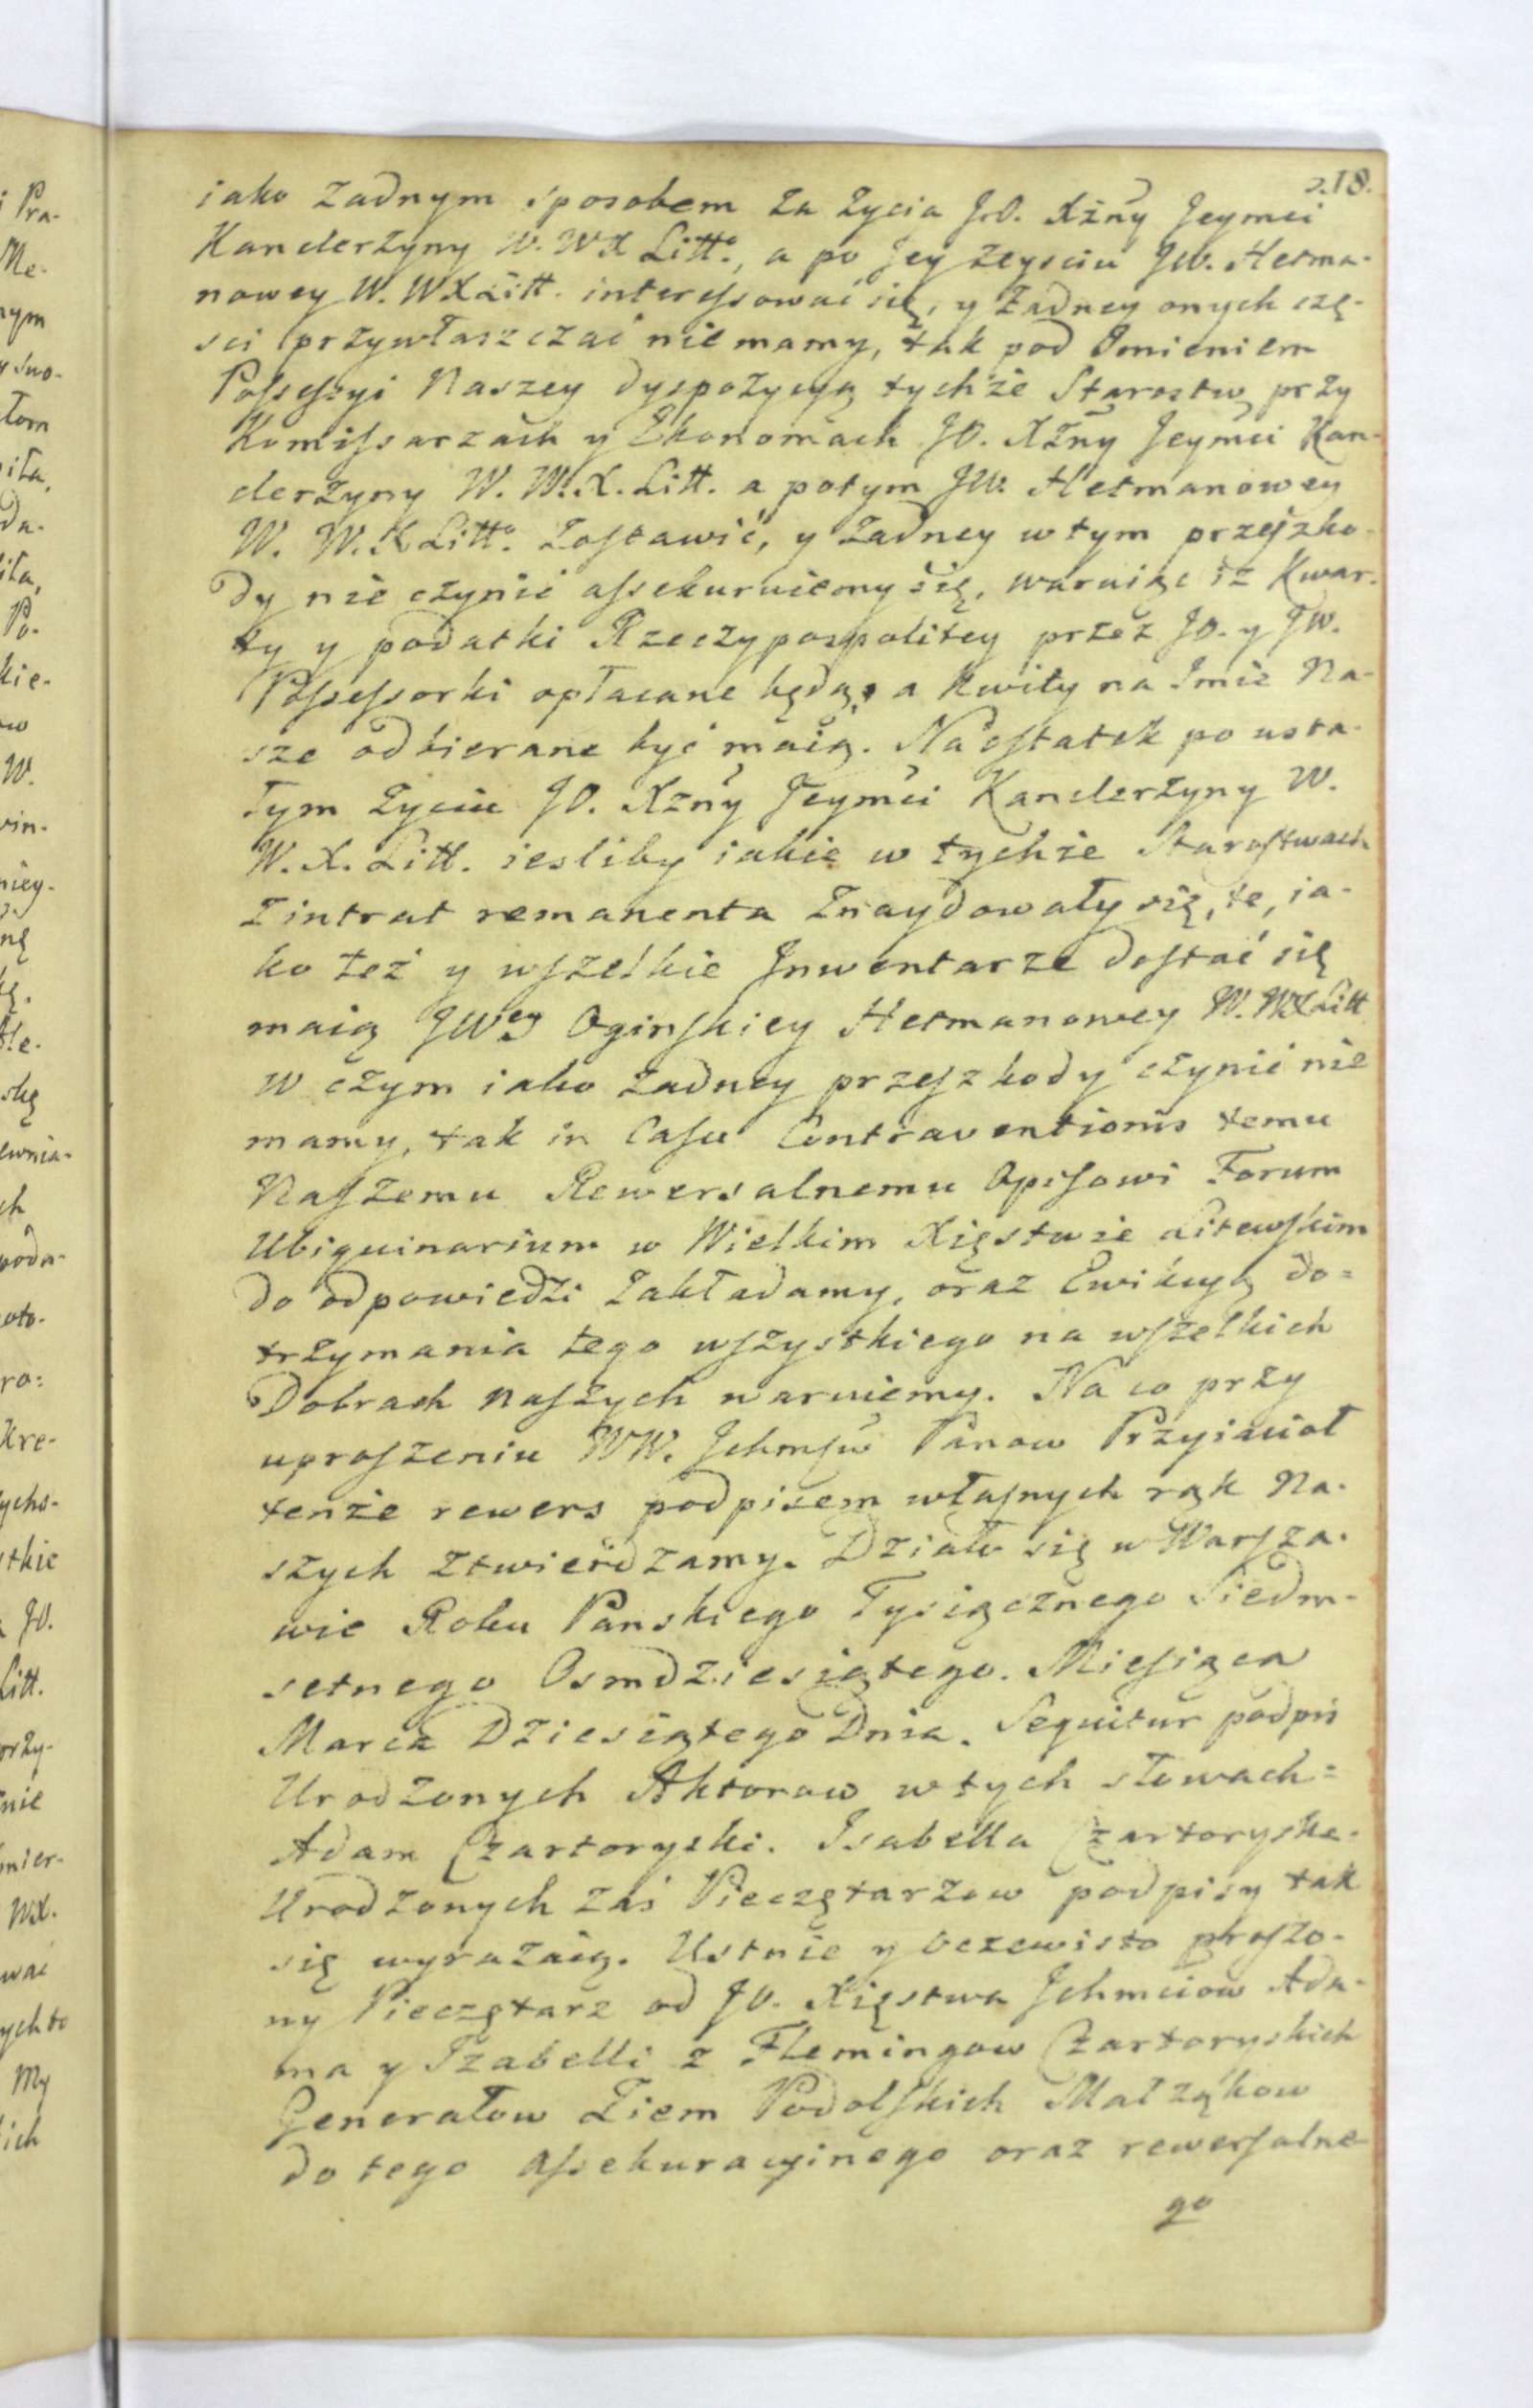 218.
iako żadnym sposobem za życia J.O. Xżny Jeymci
Kanclerzyny W. WX Litt., a po Jey zeysciu JW. Hetma-
nowey W. WXLitt. interessować się, y żadney onych czę-
sci przywłaszczać nie mamy, tak pod Jmieniem
Possessyi Naszey dyspozycyą tychże Starostw przy
Kommissarzach y Ekonomach JO. Xżny Jeymci Kan-
clerzyny W. W.X. Litt. a potym JW. Hetmanowey
W. W.X Litto. zostawić, y żadney w tym przeszko-
dy nie czynić assekuruiemy się, waruiąc iż Kwar-
ty y podatki Rzeczypospolitey przez JO. y JW.
Possessorki opłacane będą, a Kwity na Jmie Na-
sze odbierane być maią. Na ostatek po usta-
łym życiu JO. Xżny Jeymci Kanclerzyny W.
W.X. Litt. iesliby iakie w tychże Starostwach
z intrat remanenta znaydowały się, te, ia-
ko też y wszelkie Jnwentarze dostać się
maią JWey Oginskiey Hetmanowey W. WX Litt
w czym iako żadney przeszkody czynić nie
mamy, tak in Casu Contraventionis temu
Naszemu Rewersalnemu Opisowi Forum
Ubiquinarium w Wielkim Xięstwie Litewskim
do odpowiedzi zakładamy, oraz Ewikcyą do-
trzymania tego wszystkiego na wszelkich
Dobrach naszych waruiemy. Na co przy
uproszeniu WW. Jchmsw Panow Przyiacioł
tenże rewers podpisem własnych rąk Na-
szych ztwierdzamy. Działo się w Warsza-
wie Roku Panskiego Tysiącznego Siedm-
setnego Osmdziesiątego. Miesiąca
Marca Dziesiątego Dnia. Sequitur podpis
Urodzonych Aktorow w tych słowach=
Adam Czartoryski. Isabella Czartoryska.
Urodzonych zaś Pieczętarzow podpisy tak
się wyrażaią. Ustnie y oczewisto proszo-
ny Pieczętarz od JO. Xięstwa Jchmciow Ada-
ma y Jzabelli z Flemingow Czartoryskich
Generałow Ziem Podolskich Małżąkow
do tego assekuracyinego oraz rewersalne
go